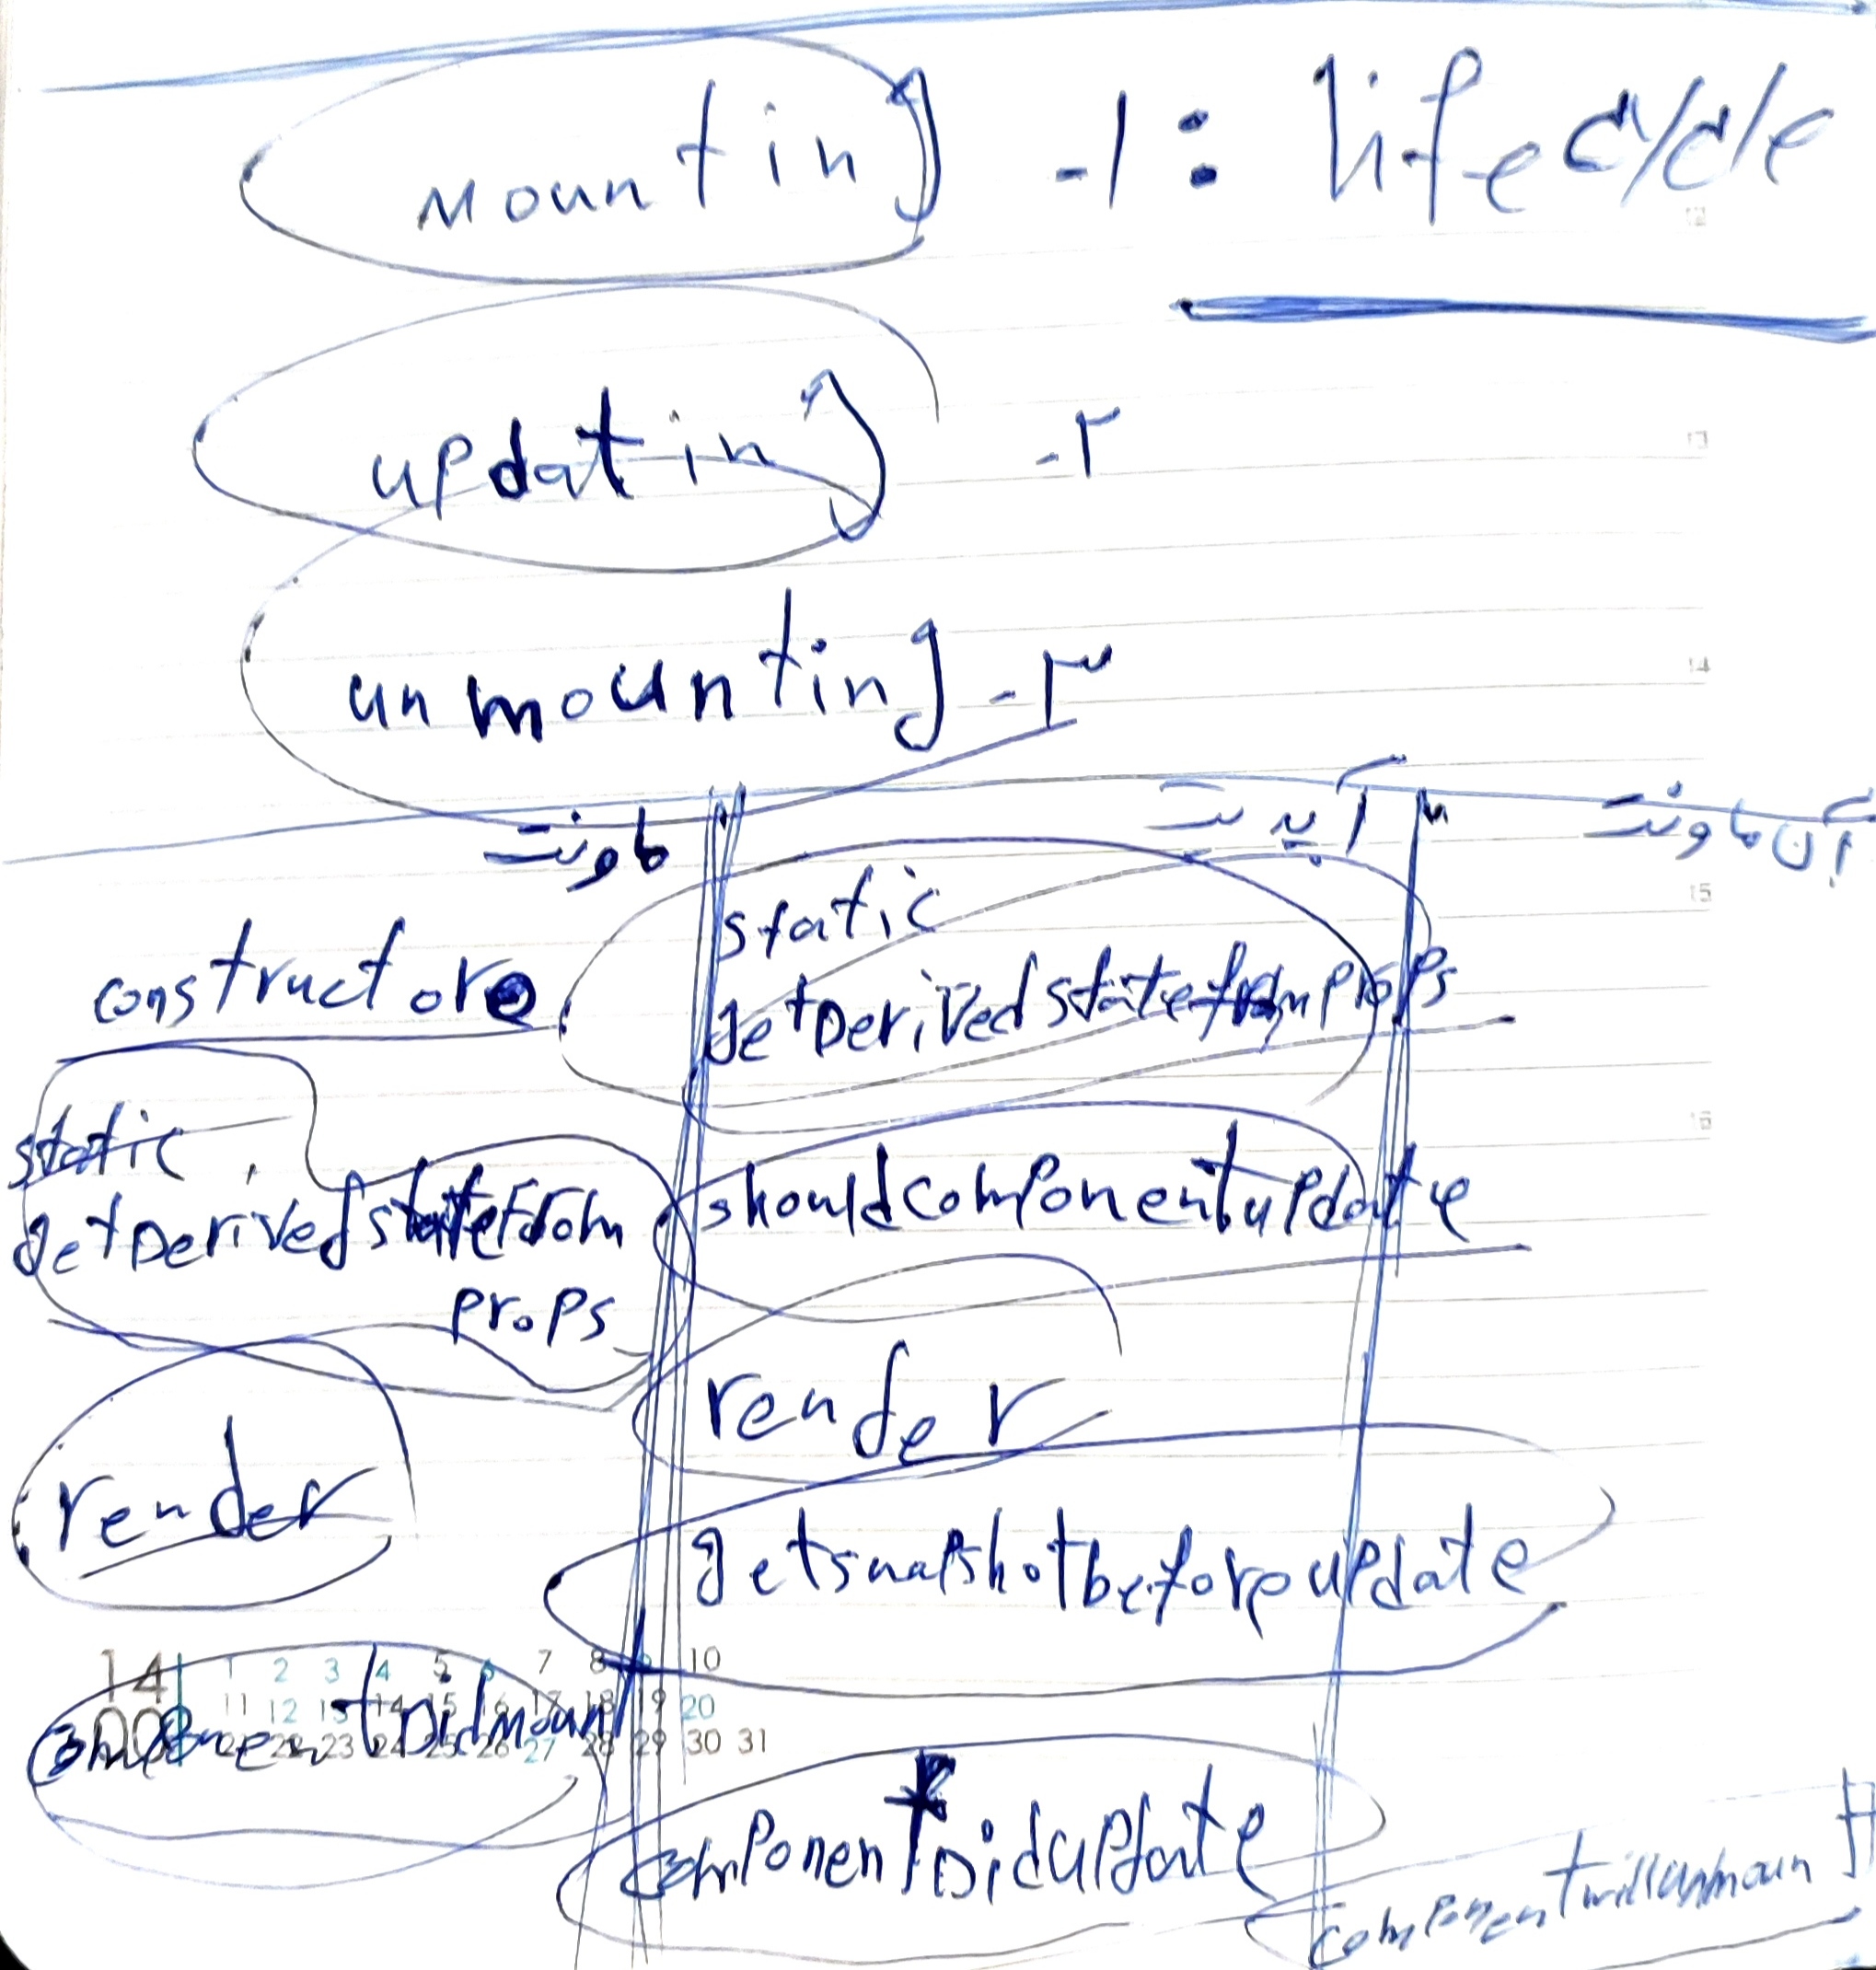 lifecycle : ۱- mounting
۲- updating
۳- unmounting
ماونت
constructore
static
getDerivedstatefrom
props
render
componentDidmount
آپدیت
static
getDerivedstatefromprops
shouldcomponentupdate
render
getsnapshotbeforeupdate
componentDidupdate
آن ماونت
componentwillunmount
12
13
14
15
16
14
1 2 3 4 5 6 7 8 9 10
11 12 13 14 15 16 17 18 19 20
21 22 23 24 25 26 27 28 29 30 31